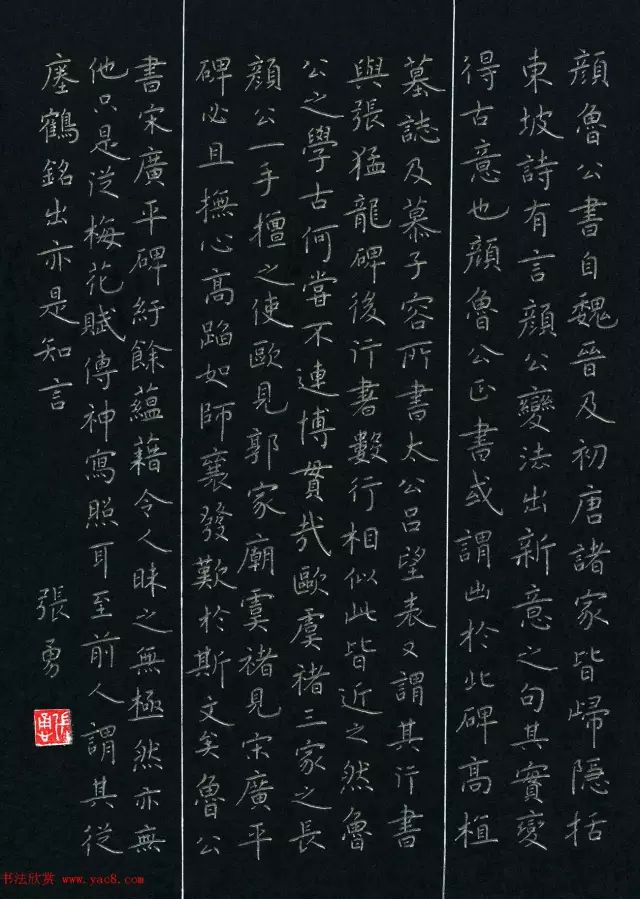 顔魯公書自魏晉及初唐諸家皆歸隱括
東坡詩有言顔公變法出新意之句其實變
得古意也顔魯公正書或謂出於此碑高植
墓誌及慕子容所書太公呂望表又謂其行書
與張猛龍碑後行書數行相似此皆近之然魯
公之學古何嘗不連博貫哉歐虞褚三家之長
顔公一手擅之使歐見郭家廟虞褚見宋廣平
碑必且撫心高蹈如師襄發歎於斯文矣魯公
書宋廣平碑紆餘蘊藉令人味之無極然亦無
他只是從梅花賦傳神寫照耳至前人謂其從
瘞鶴銘出亦是知言
張勇
張勇
书法欣赏 www.yac8.com